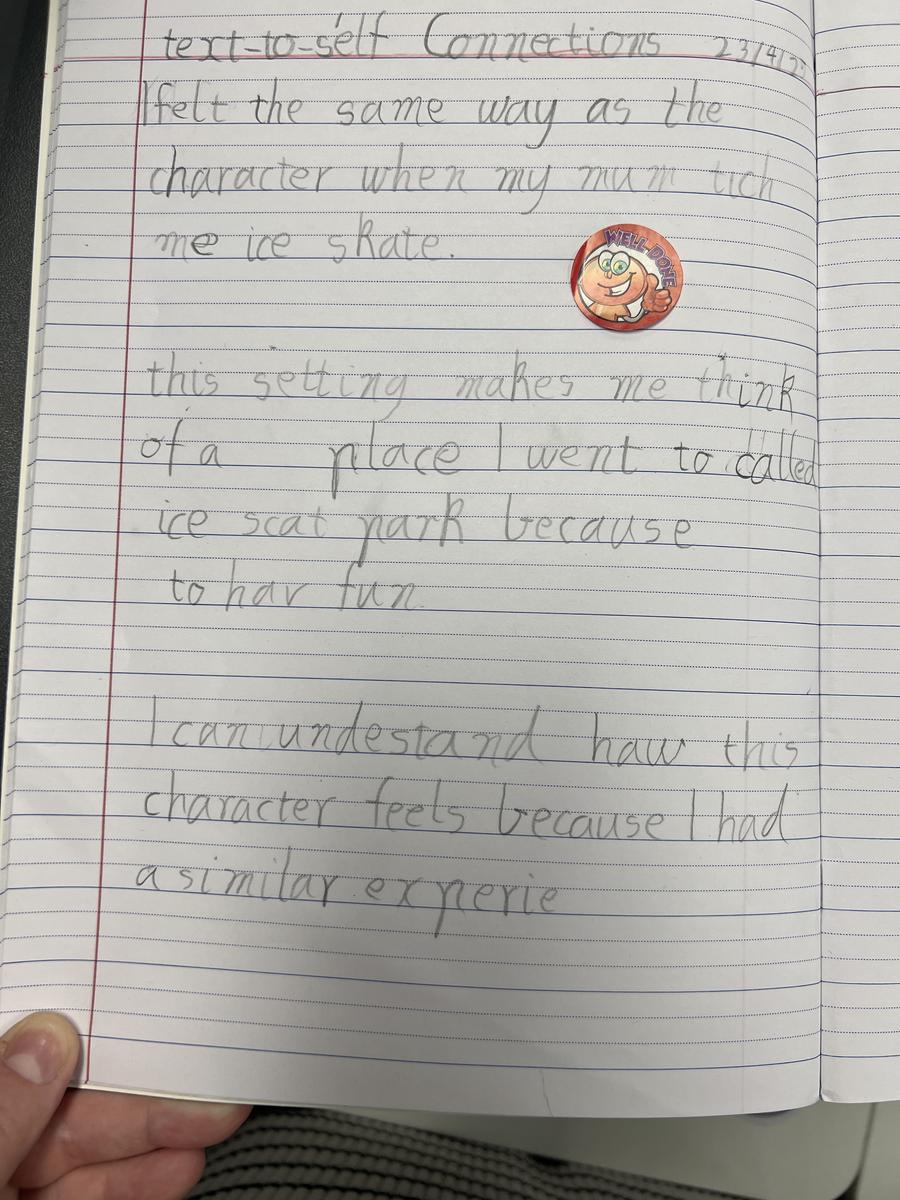 text-to-self Connections 23/4/
I felt the same way as the
character when my mum tich
me ice skate.
WELL DONE
this setting makes me think
of a place I went to called
ice scat park because
to hav fun.
I can undestand haw this
character feels because I had
a similar experie